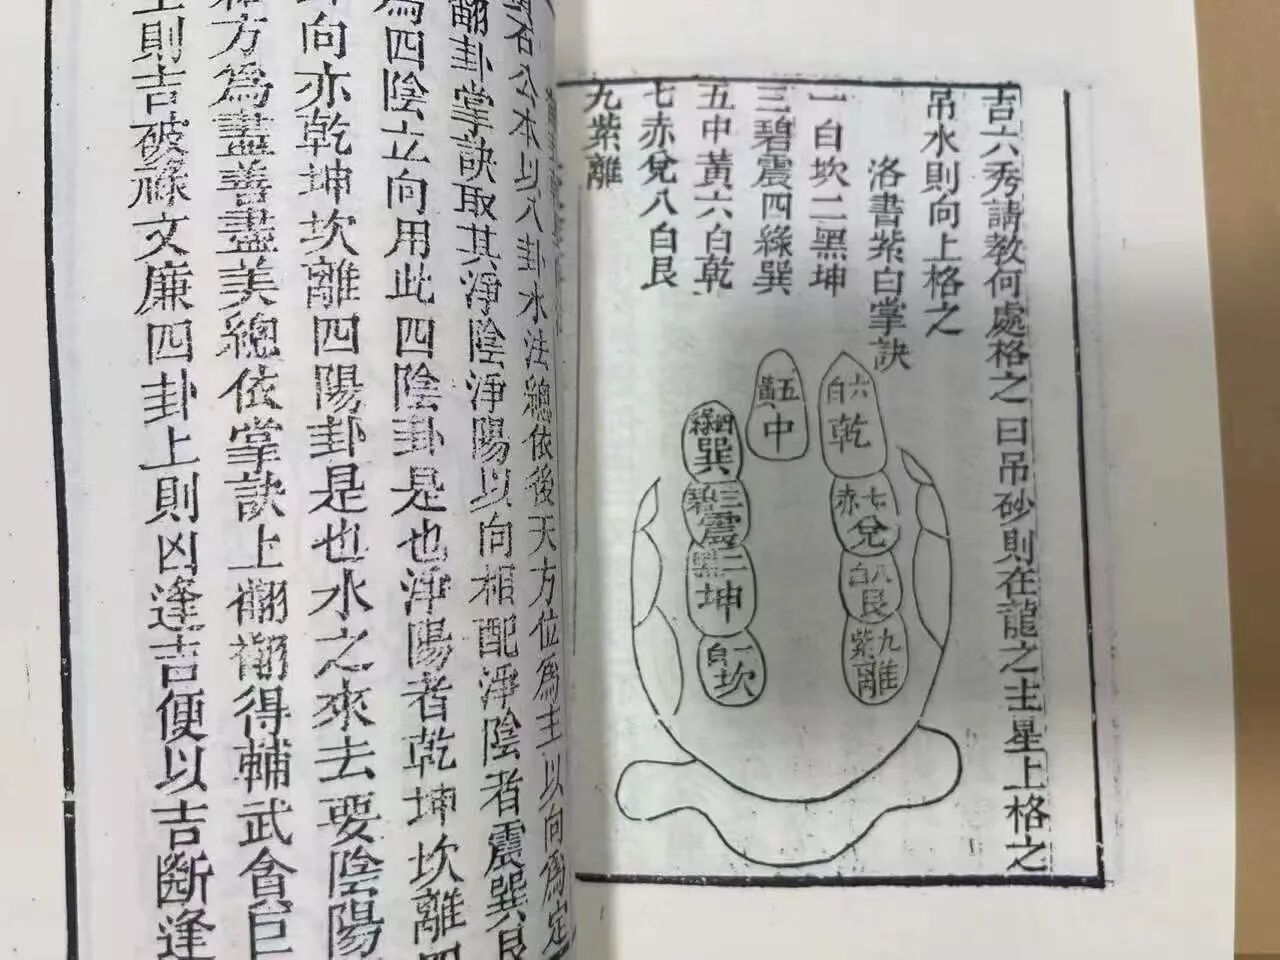 吉六秀請教何處格之曰吊砂則在龍之主星上格之
吊水則向上格之
洛書紫白掌訣
一白坎二黑坤
三碧震四綠巽
五中黃六白乾
七赤兌八白艮
九紫離
六白乾
七赤兌
八白艮
九紫離
五黃中
四綠巽
三碧震
二黑坤
一白坎
石公本以八卦水法總依後天方位為主以向為定
翻卦掌訣取其淨陰淨陽以向相配淨陰者震巽艮
為四陰立向用此四陰卦是也淨陽者乾坤坎離四
向亦乾坤坎離四陽卦是也水之來去要陰陽
方為盡善盡美總依掌訣上翻翻得輔武貪巨
則吉破祿文廉四卦上則凶逢吉便以吉斷逢